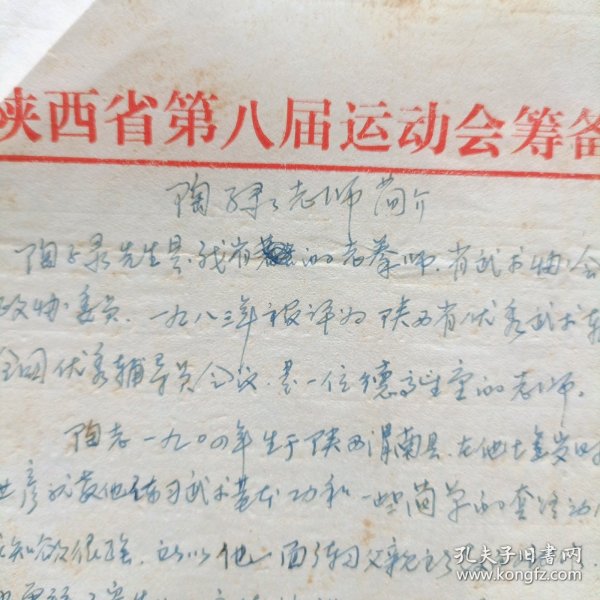 陕西省第八届运动会筹备
老师简介
陶子录先生是我省的老拳师，省武术协会
政协委员，一九八三年被评为陕西省优秀武术辅
全国优秀辅导员会议，是一位德高望重的老师。
陶老一九〇〇年生于陕西渭南县，在他七岁时
就教他练习武术基本功和一些简单的套路
求知欲很强，所以他一面练习父亲
孔夫子旧书网